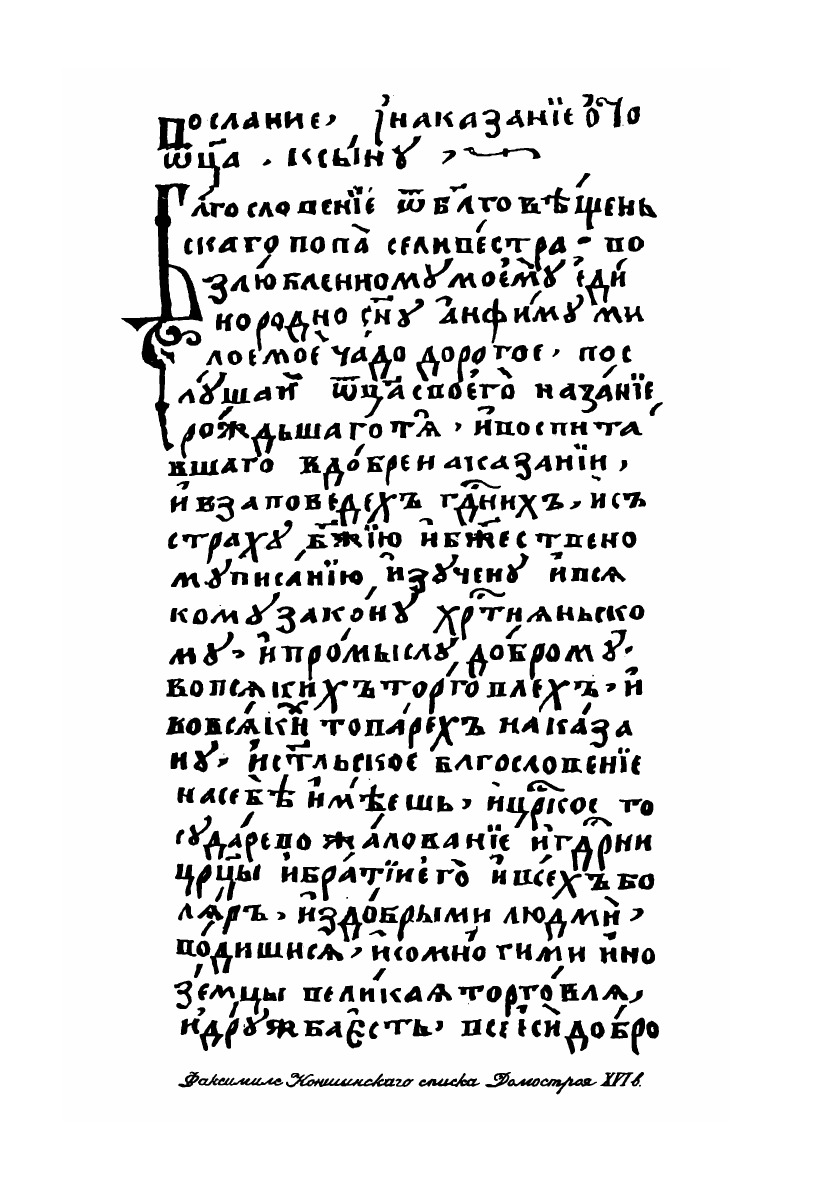 Послание, и наказанїе ѿ
ѿца . ксыну ,
Благословенїе ѿ блговѣщень
скаго попа селивестра - во
злюбленному моему еди
нородно сну анфиму ми
лоемое чадо дорогое, пос
лушай ѿца своего наказанїе
рождьшаго тѧ, ивоспита
вшаго вдобре наказанїи,
и взаповедехъ гднихъ, исъ
страху бжїю ибжествено
муписанїю, изучену ивсѧ
кому закону хртиѧньско
му, ипромыслу доброму.
вовсѧкихъ торговлехъ, и
вовсѧки товарехъ наказа
ну, истльское благословенїе
насебѣ имѣешь, ицрское го
сударево жалованїе игдрни
црцы ибратїи его ивсехъ бо
лѧръ, издобрыми людми,
водишисѧ, исомногими ино
земцы великаѧ торговлѧ,
идружба есть, все еси добро
Факсимиле Коншинскаго списка Домостроя XVI в.